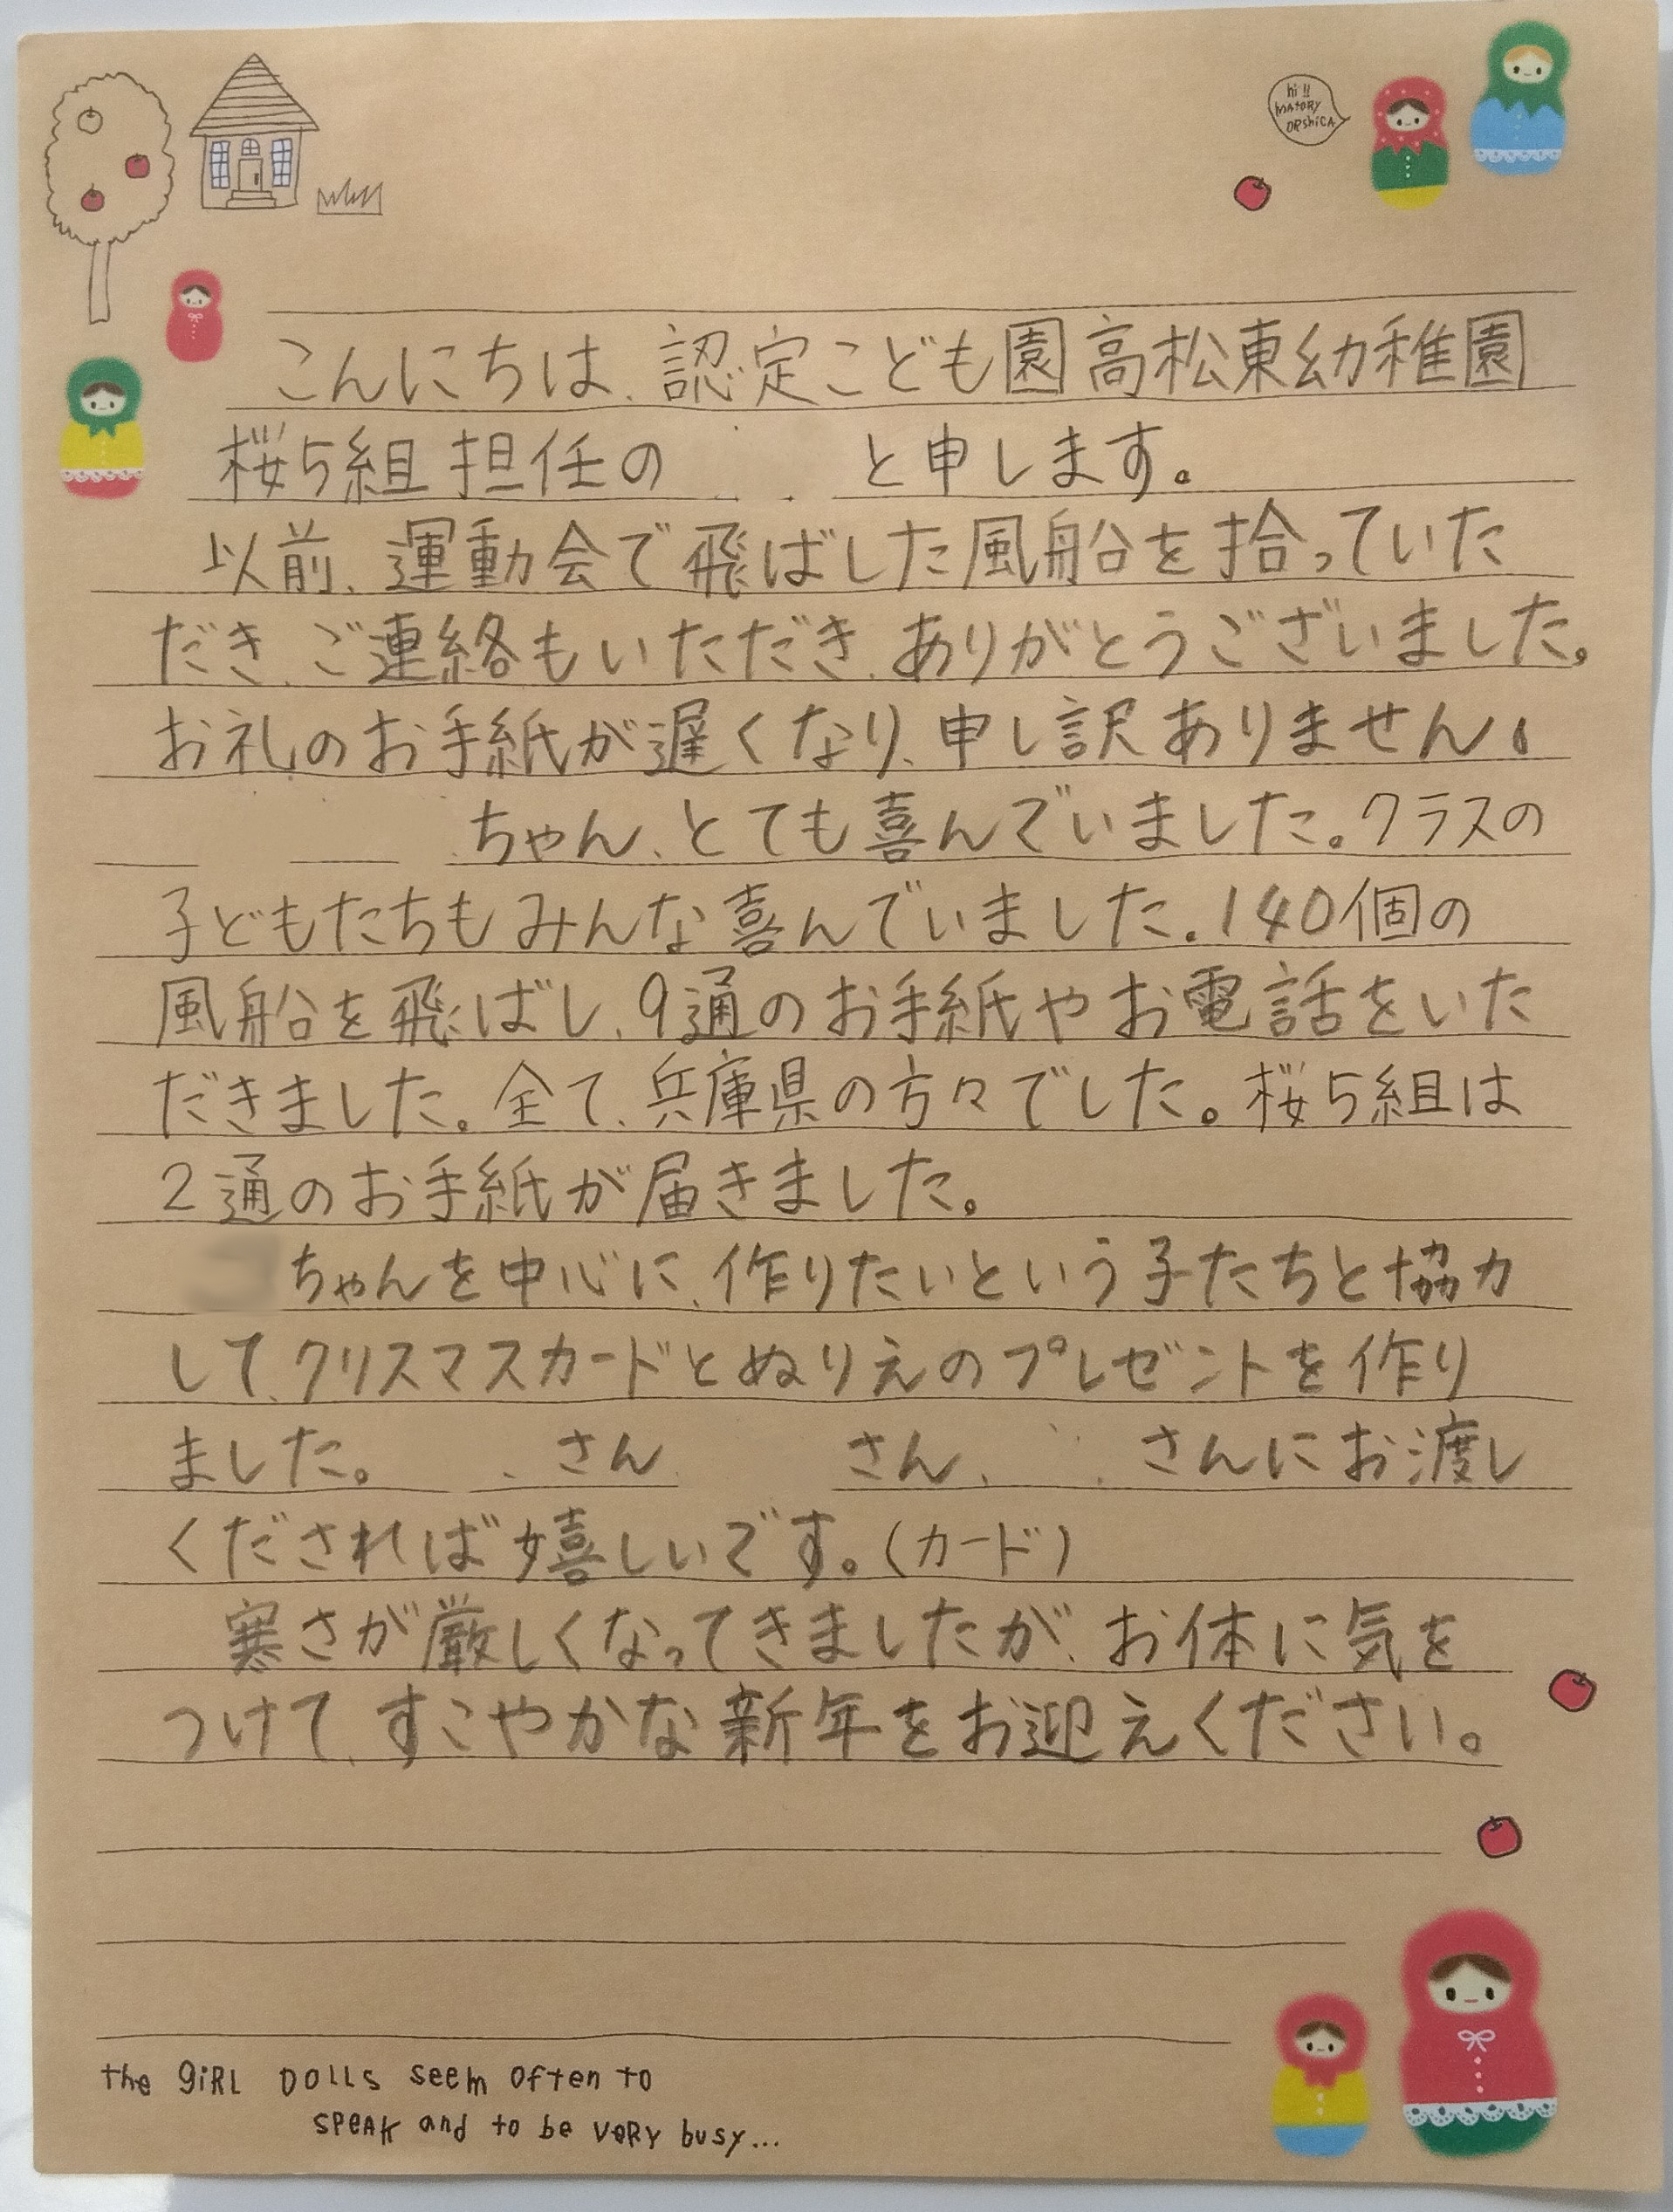 hi!!
MATORY
ORSHICA
こんにちは、認定こども園高松東幼稚園
桜5組担任の と申します。
以前、運動会で飛ばした風船を拾っていた
だき、ご連絡もいただき、ありがとうございました。
お礼のお手紙が遅くなり、申し訳ありません。
ちゃん、とても喜んでいました。クラスの
子どもたちもみんな喜んでいました。140個の
風船を飛ばし、9通のお手紙やお電話をいた
だきました。全て、兵庫県の方々でした。桜5組は
2通のお手紙が届きました。
ちゃんを中心に、作りたいという子たちと協力
して、クリスマスカードとぬりえのプレゼントを作り
ました。 さん さん、 さんにお渡し
くだされば嬉しいです。(カード)
寒さが厳しくなってきましたが、お体に気を
つけて、すこやかな新年をお迎えください。
the giRL DOLLS seem often to
SPEAK and to be VeRY busy...